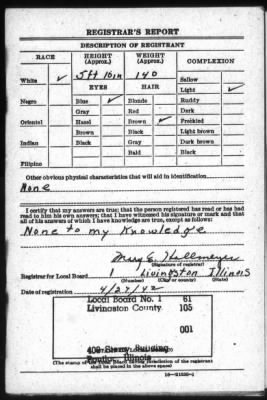 REGISTRAR'S REPORT
DESCRIPTION OF REGISTRANT
RACE HEIGHT (Approx.) WEIGHT (Approx.) COMPLEXION
White ✓ 5ft 10in 140 Sallow
EYES HAIR Light ✓
Negro Blue ✓ Blonde Ruddy
Gray Red Dark
Oriental Hazel Brown ✓ Freckled
Brown Black Light brown
Indian Black Gray Dark brown
Bald Black
Filipino
Other obvious physical characteristics that will aid in identification
None
I certify that my answers are true; that the person registered has read or has had
read to him his own answers; that I have witnessed his signature or mark and that
all of his answers of which I have knowledge are true, except as follows:
None to my Knowledge
Mary E. Hallmeyer
(Signature of registrar)
Registrar for Local Board 1 Livingston Illinois
(Number) (City or county) (State)
Date of registration 4/27/42
Local Board No. 1 61
Livingston County 105
001
Building
Pontiac, Illinois
(The stamp of the Local Board having jurisdiction of the registrant
shall be placed in the above space)